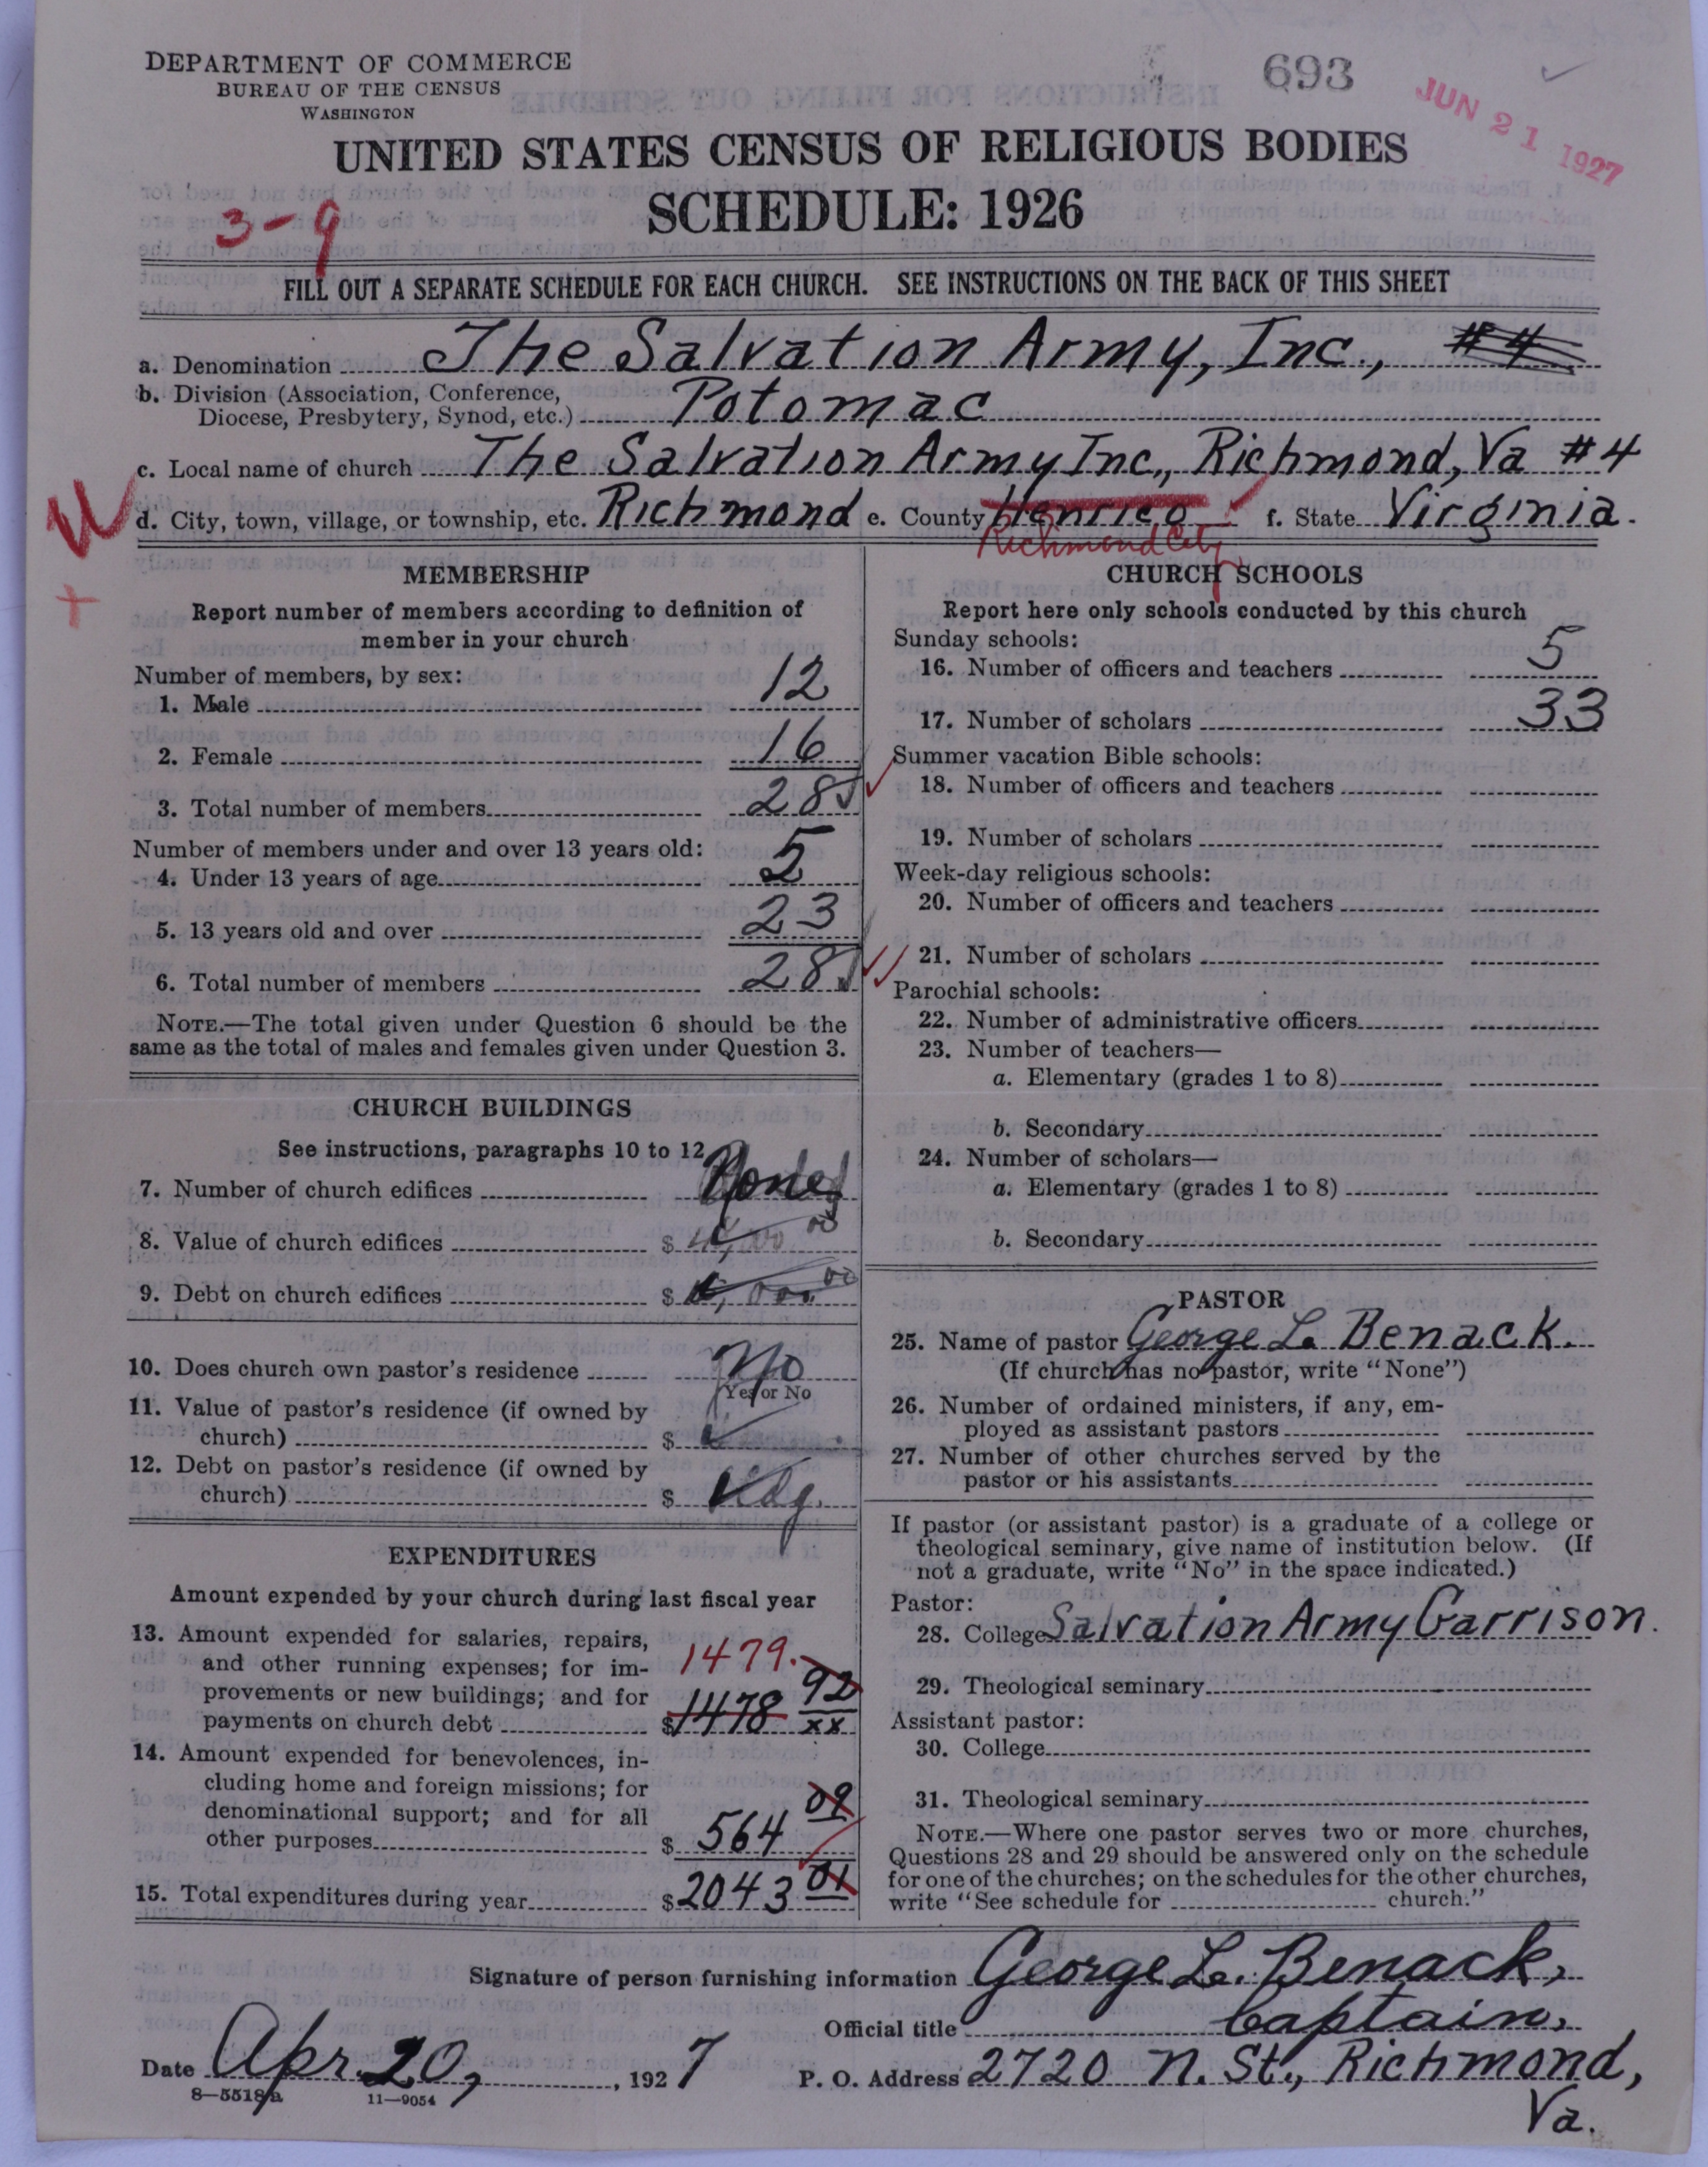 DEPARTMENT OF COMMERCE
BUREAU OF THE CENSUS
WASHINGTON
693
JUN 21 1927
UNITED STATES CENSUS OF RELIGIOUS BODIES
SCHEDULE: 1926
3-9
FILL OUT A SEPARATE SCHEDULE FOR EACH CHURCH. SEE INSTRUCTIONS ON THE BACK OF THIS SHEET
a. Denomination The Salvation Army, Inc., #4
b. Division (Association, Conference,
Diocese, Presbytery, Synod, etc.) Potomac
c. Local name of church The Salvation Army Inc., Richmond, Va #4
d. City, town, village, or township, etc. Richmond e. County Henrico f. State Virginia.
Richmond City
MEMBERSHIP
Report number of members according to definition of
member in your church
Number of members, by sex:
1. Male 12
2. Female 16
3. Total number of members 28
Number of members under and over 13 years old:
4. Under 13 years of age 5
5. 13 years old and over 23
6. Total number of members 28
NOTE.—The total given under Question 6 should be the
same as the total of males and females given under Question 3.
CHURCH BUILDINGS
See instructions, paragraphs 10 to 12
7. Number of church edifices None
8. Value of church edifices $
9. Debt on church edifices $
10. Does church own pastor's residence No
Yes or No
11. Value of pastor's residence (if owned by
church) $
12. Debt on pastor's residence (if owned by
church) $
EXPENDITURES
Amount expended by your church during last fiscal year
13. Amount expended for salaries, repairs,
and other running expenses; for im-
provements or new buildings; and for
payments on church debt $1478 92 xx
1479.
14. Amount expended for benevolences, in-
cluding home and foreign missions; for
denominational support; and for all
other purposes $ 564 09
15. Total expenditures during year $2043 01
CHURCH SCHOOLS
Report here only schools conducted by this church
Sunday schools:
16. Number of officers and teachers 5
17. Number of scholars 33
Summer vacation Bible schools:
18. Number of officers and teachers
19. Number of scholars
Week-day religious schools:
20. Number of officers and teachers
21. Number of scholars
Parochial schools:
22. Number of administrative officers
23. Number of teachers—
a. Elementary (grades 1 to 8)
b. Secondary
24. Number of scholars—
a. Elementary (grades 1 to 8)
b. Secondary
PASTOR
25. Name of pastor George L. Benack.
(If church has no pastor, write "None")
26. Number of ordained ministers, if any, em-
ployed as assistant pastors
27. Number of other churches served by the
pastor or his assistants
If pastor (or assistant pastor) is a graduate of a college or
theological seminary, give name of institution below. (If
not a graduate, write "No" in the space indicated.)
Pastor:
28. College Salvation Army Garrison.
29. Theological seminary
Assistant pastor:
30. College
31. Theological seminary
NOTE.—Where one pastor serves two or more churches,
Questions 28 and 29 should be answered only on the schedule
for one of the churches; on the schedules for the other churches,
write "See schedule for church."
Signature of person furnishing information George L. Benack,
Official title Captain,
Date Apr. 20, 1927 P. O. Address 2720 N. St., Richmond,
Va.
8—5518a 11—9054